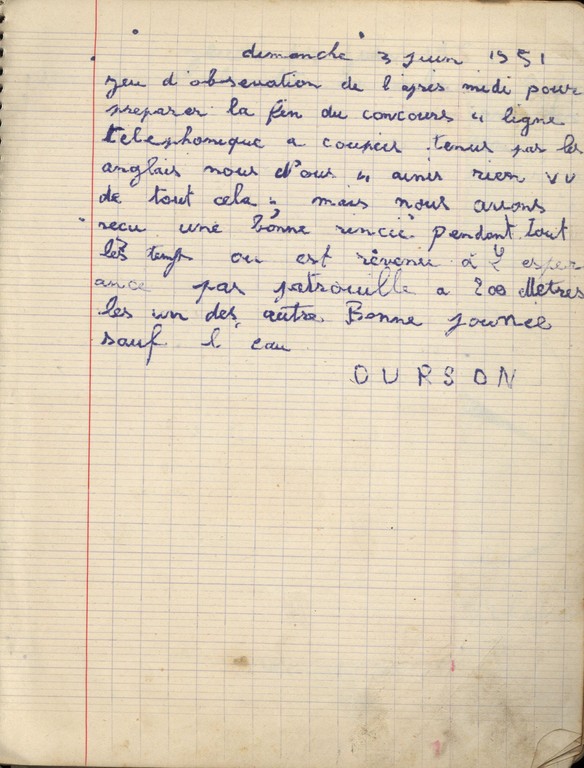 dimanche 3 juin 1951
jeu d'obsevation de l'après midi pour
preparer la fin du concours " ligne
telephonique a coupées tenus par les
anglais nous n'ous " ainis rien vu
de tout cela " mais nous avons
recu une bonne rincié pendant tout
les temps ou est revenu à l'esper
ance par patrouille a 200 Mètres
les un des autre Bonne journee
sauf l'eau
OURSON